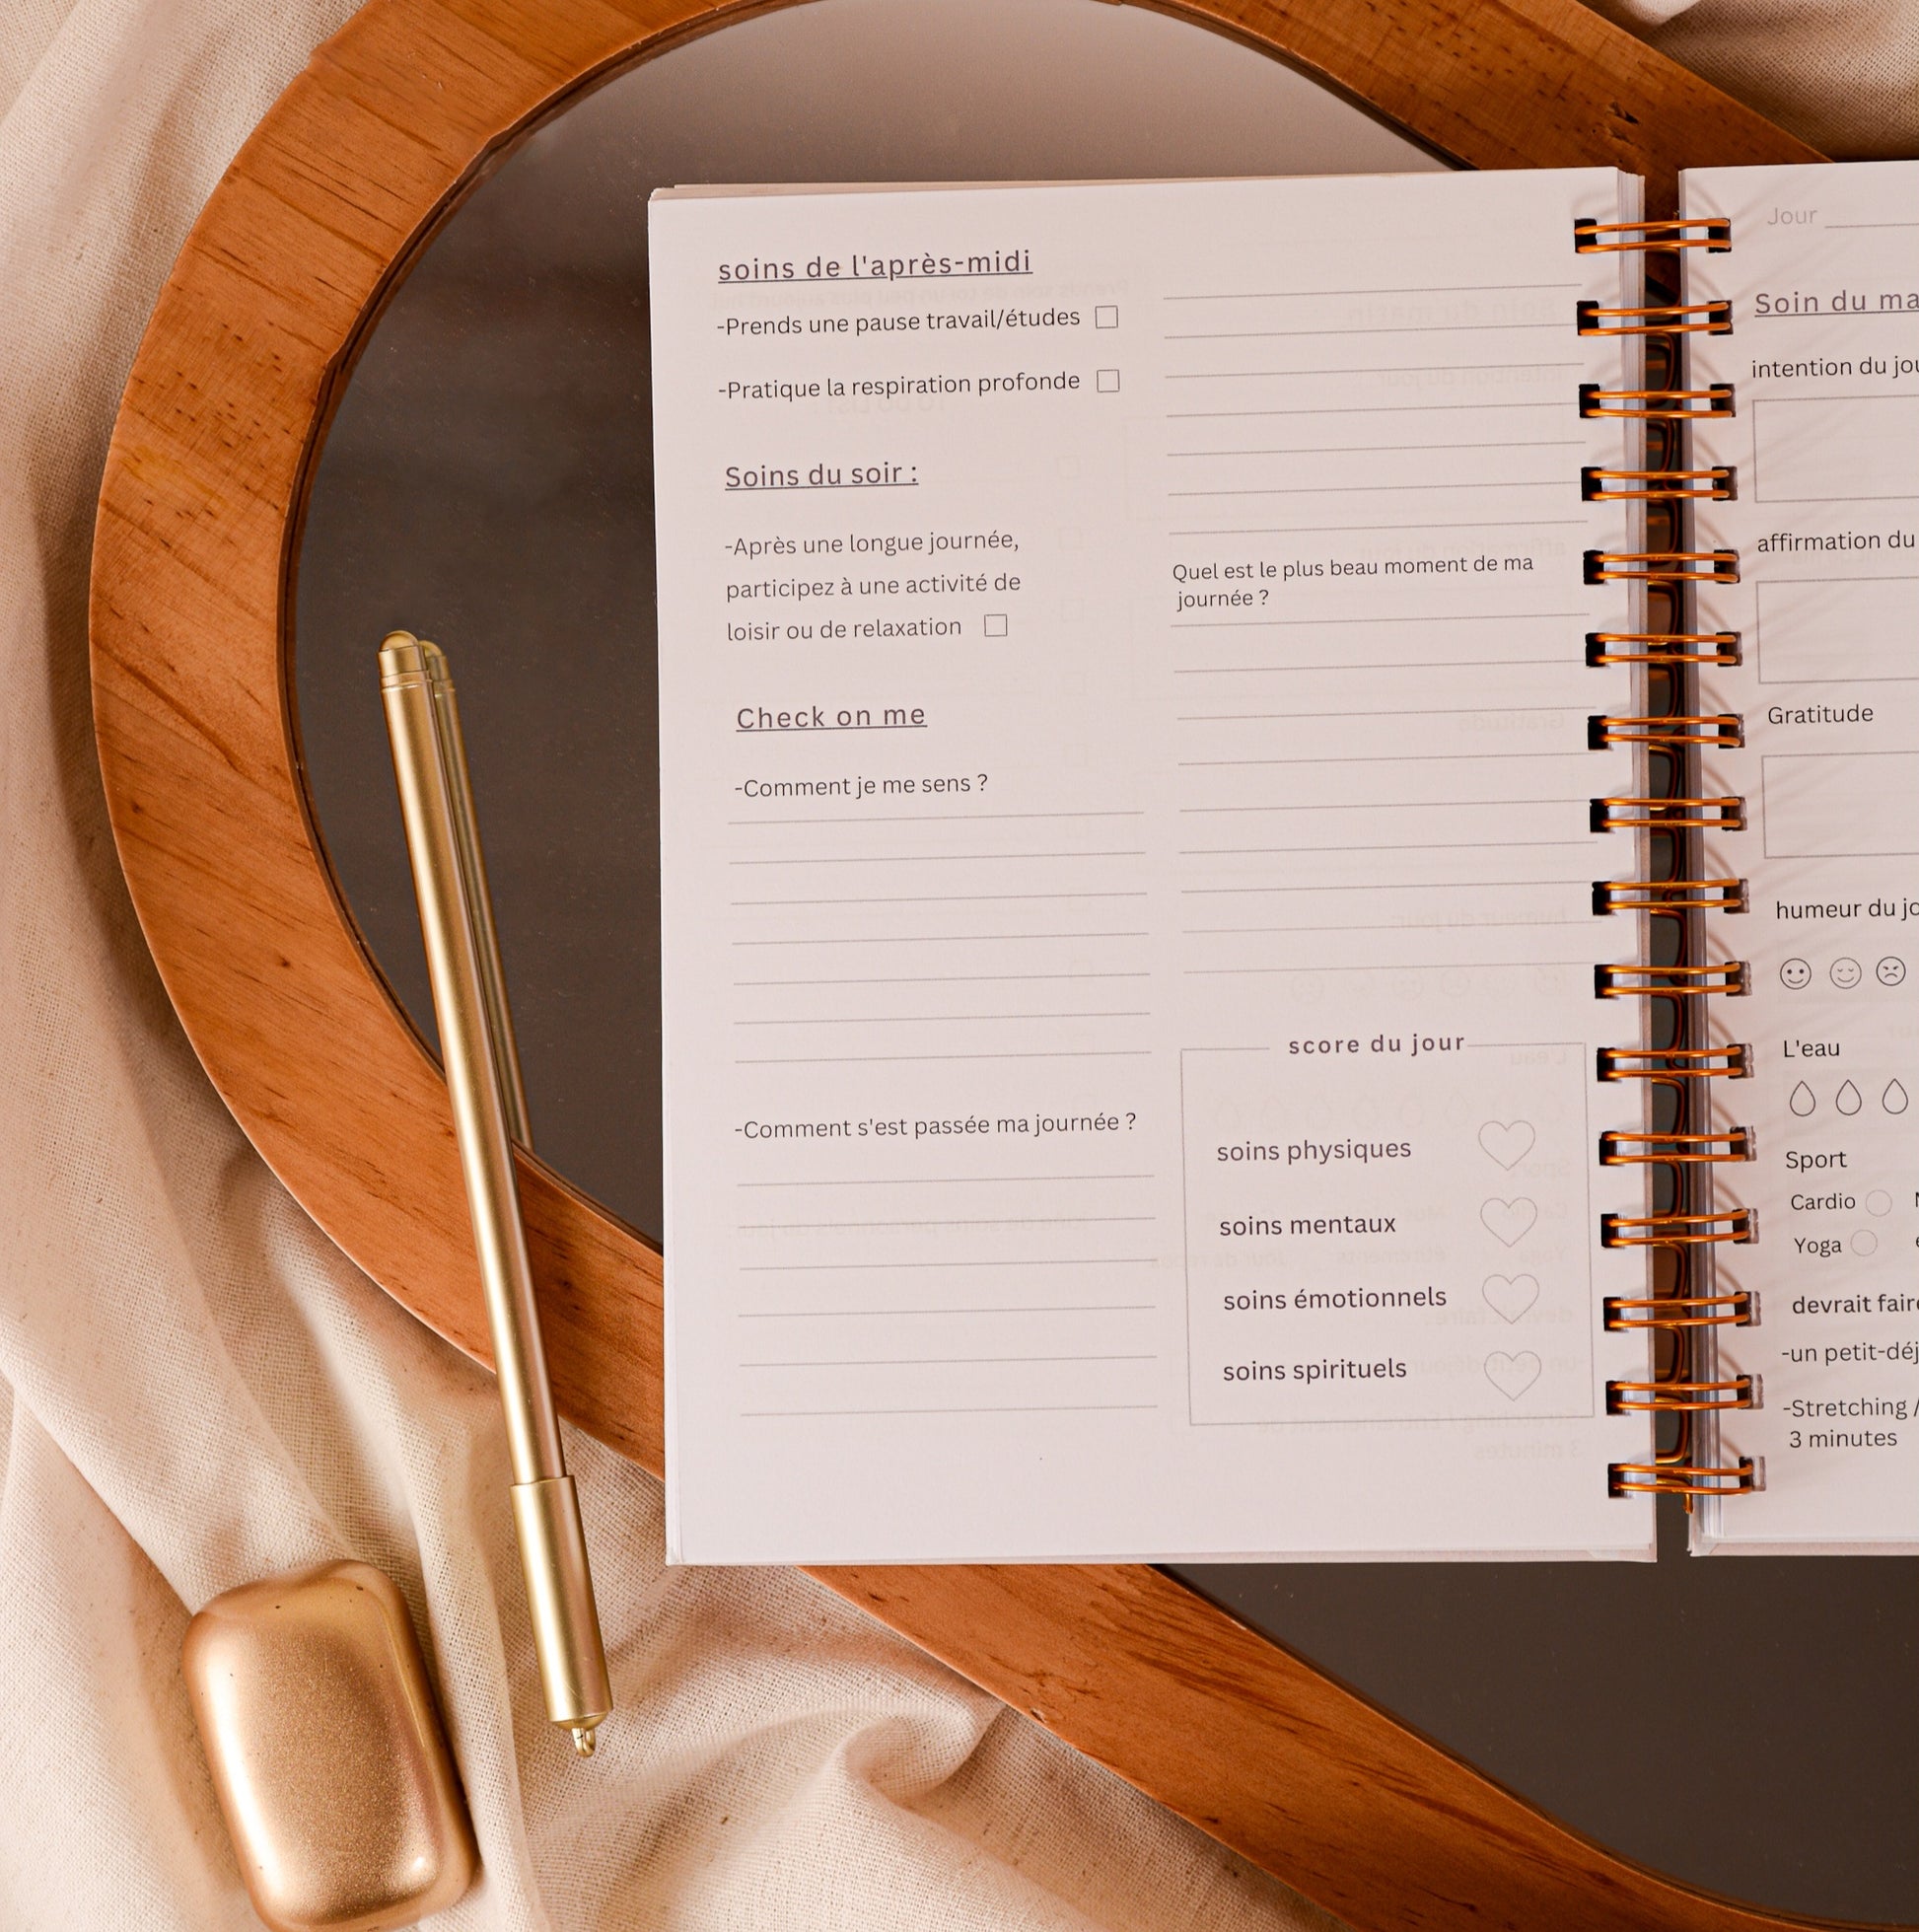 soins de l'après-midi
-Prends une pause travail/études
-Pratique la respiration profonde
Soins du soir :
-Après une longue journée,
participez à une activité de
loisir ou de relaxation
Check on me
-Comment je me sens ?
-Comment s'est passée ma journée ?
Quel est le plus beau moment de ma
journée ?
score du jour
soins physiques
soins mentaux
soins émotionnels
soins spirituels
Jour
Soin du ma
intention du jou
affirmation du
Gratitude
humeur du jo
L'eau
Sport
Cardio
Yoga
devrait faire
-un petit-déj
-Stretching /
3 minutes